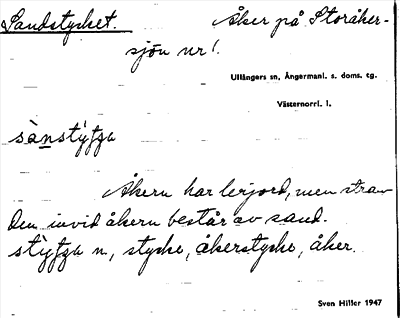 Sandstycket. Åker på Storåker-
sjön nr 1.
Ullångers sn, Ångermanl. s. doms. tg.
Västernorrl. l.
Åkern har lerjord, men stran-
den invid åkern består av sand.
n, stycke, åkerstycke, åker.
Sven Hiller 1947